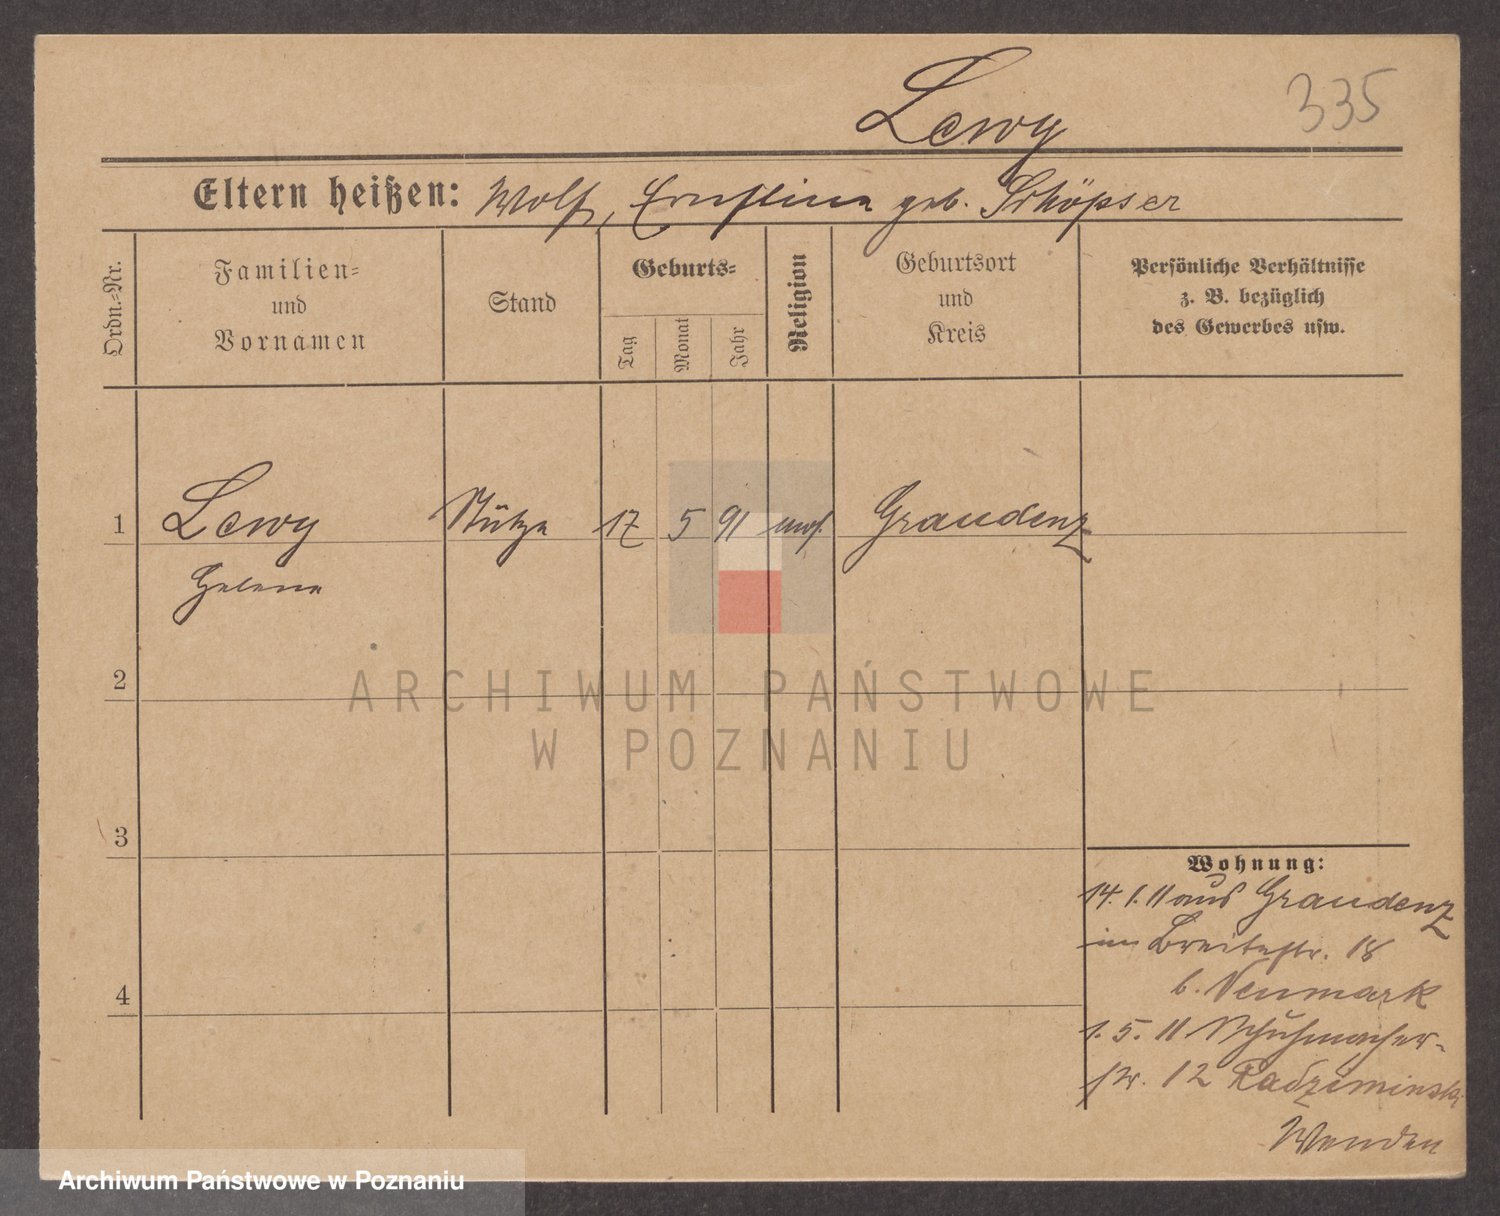 Lewy
335
Eltern heißen: Wolf, Ernstine geb. Schöpser
Ordn.-Nr.
Familien-
und
Vornamen
Stand
Geburts-
Tag
Monat
Jahr
Religion
Geburtsort
und
Kreis
Persönliche Verhältnisse
z. B. bezüglich
des Gewerbes usw.
1 Lewy Stütze 17 5 91 mos. Graudenz
Helene
2
ARCHIWUM PAŃSTWOWE
W POZNANIU
3
Wohnung:
14. 1. 11 aus Graudenz
in Breitestr. 18
b. Neumark
4
1. 5. 11 Schuhmacher-
str. 12 Radziminski
Archiwum Państwowe w Poznaniu